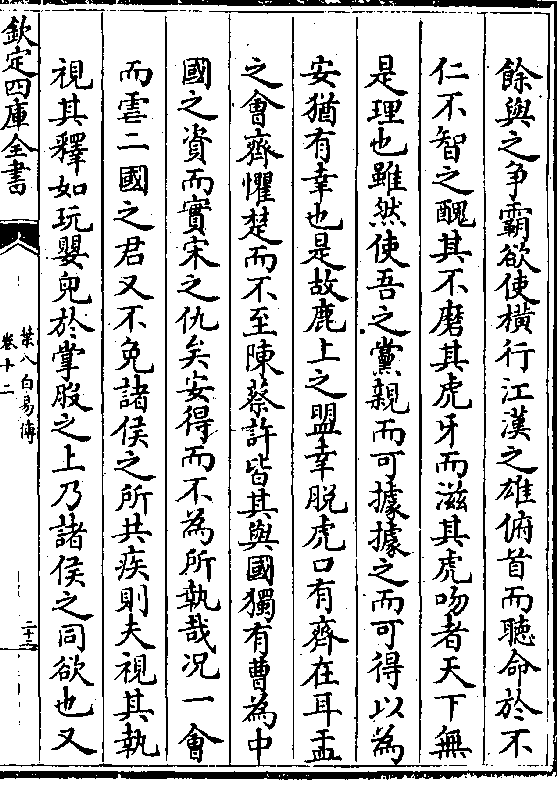 餘與之争霸欲使橫行江漢之雄俯首而聽命於不
仁不智之醜其不磨其虎牙而滋其虎吻者天下無
是理也雖然使吾之黨親而可據據之而可得以為
安猶有幸也是故鹿上之盟幸脫虎口有齊在耳盂
之會齊懼楚而不至陳蔡許皆其與國獨有曹為中
國之資而實宋之仇矣安得而不為所執哉况一會
而雲二國之君又不免諸侯之所共疾則夫視其執
視其釋如玩嬰兒於掌股之上乃諸侯之同欲也又
欽定四庫全書
葉八白易傳
卷十二
二十二